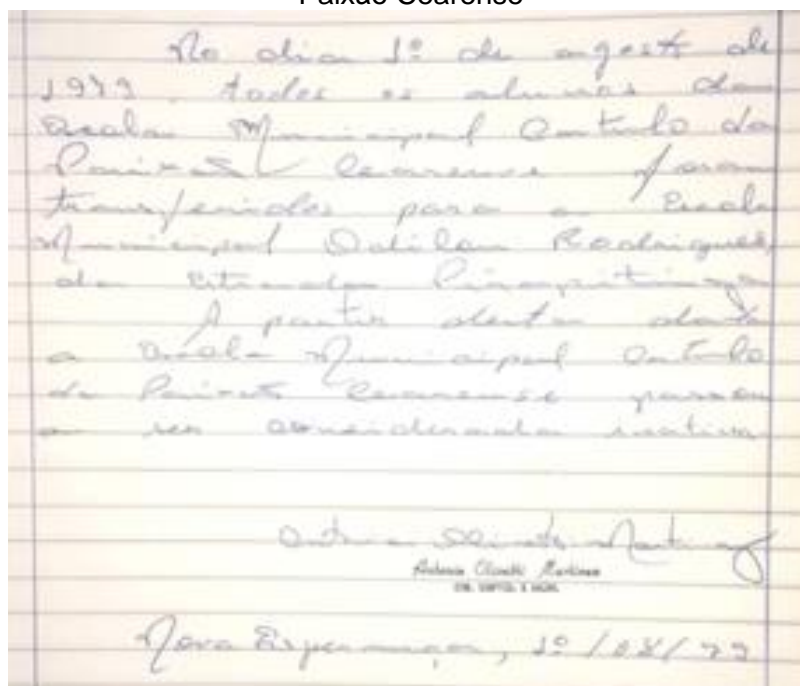 Paixão Cearense
No dia 1º de agosto de
1979, todos os alunos da
Escola Municipal Catulo da
Paixão Cearense foram
transferidos para a Escola
Municipal Odilon Rodrigues,
da Estrada Pirapitinga
A partir desta data
a Escola Municipal Catulo
da Paixão Cearense passou
a ser considerada inativa
Antonio Olivetti Martinez
Nova Esperança, 1º/08/79